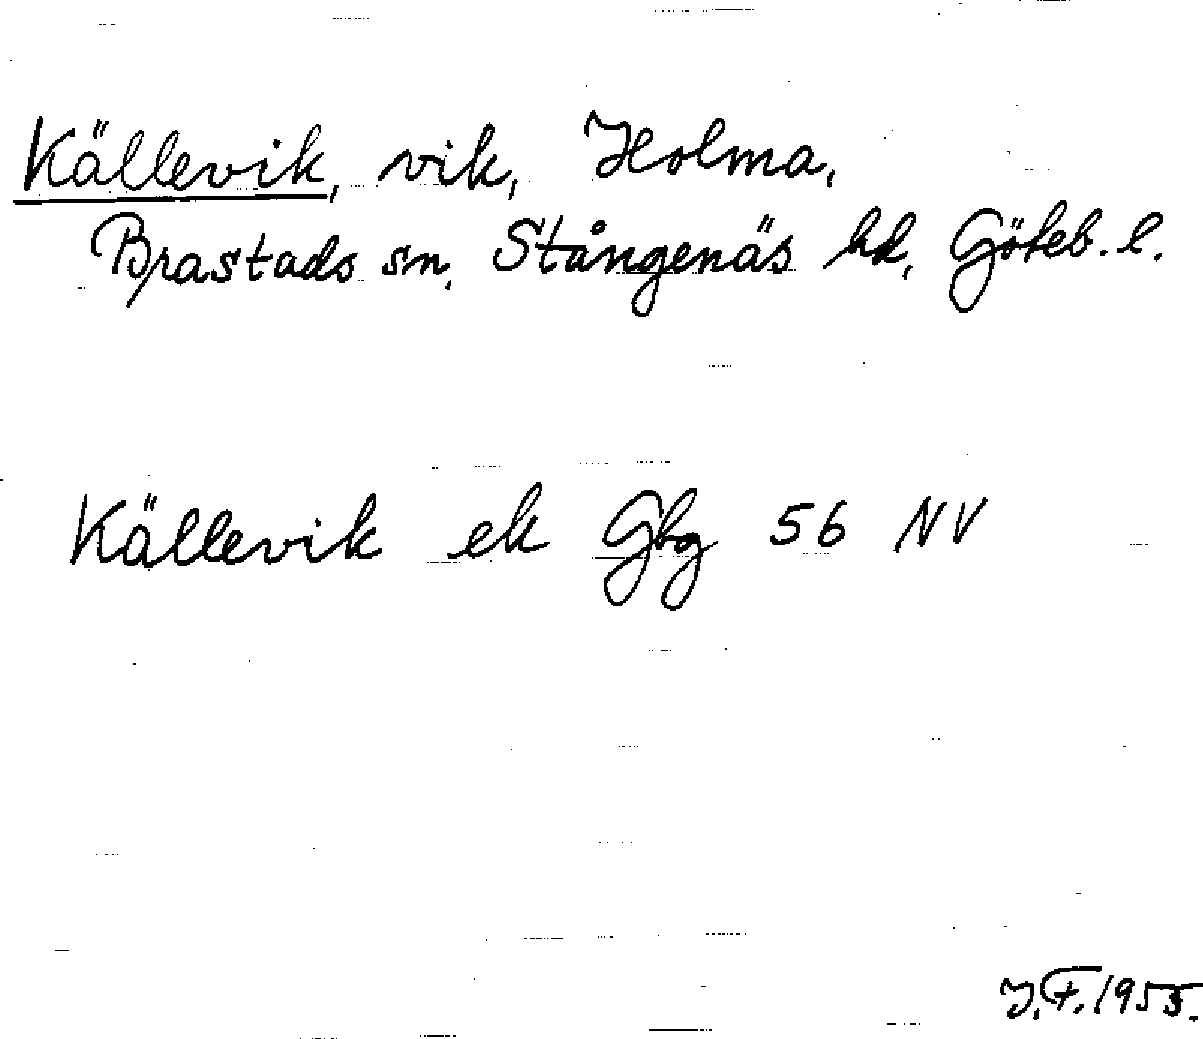 Källevik, vik, Holma,
Brastads sn, Stångenäs hd, Göteb. l.
Källevik ek Gbg 56 NV
J.F. 1955.